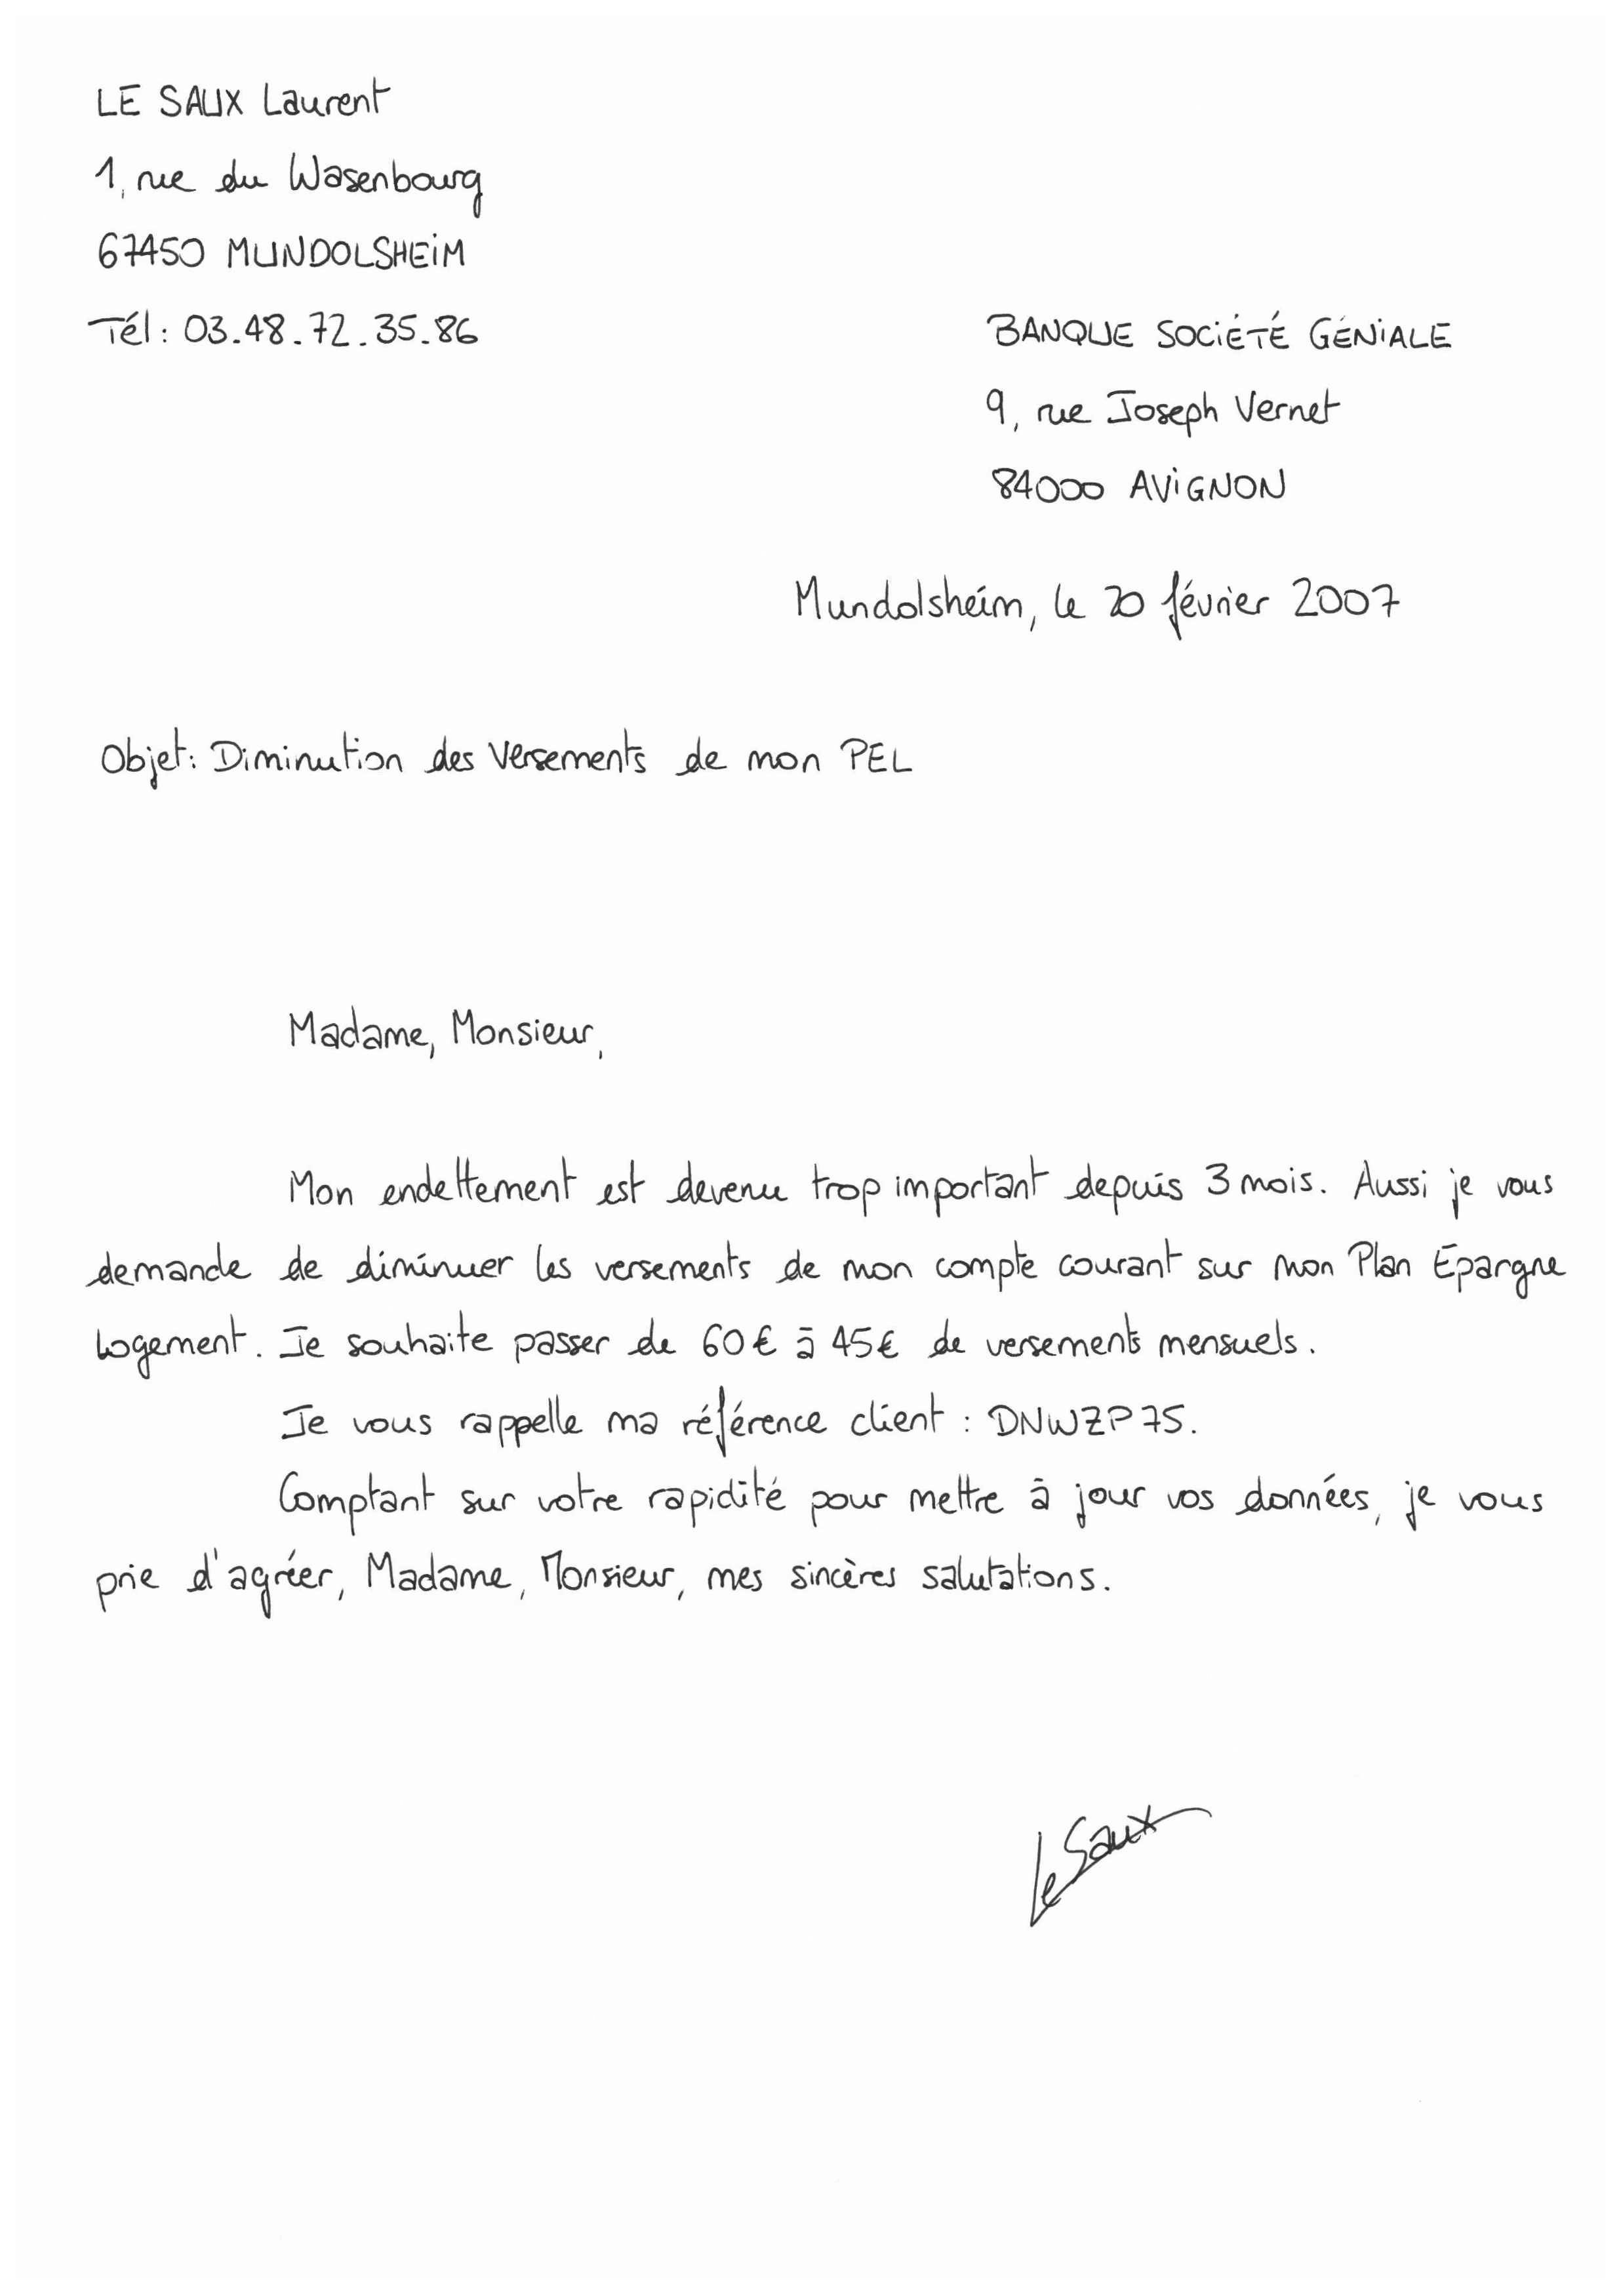 LE SAUX Laurent
1, rue du Wasenbourg
67450 MUNDOLSHEiM
Tél : 03.48.72.35.86
BANQUE SOCiÉTÉ GÉNiALE
9, rue Joseph Vernet
84000 AViGNON
Mundolsheim, le 20 février 2007
Objet : Diminution des versements de mon PEL
Madame, Monsieur,
Mon endettement est devenu trop important depuis 3 mois. Aussi je vous
demande de diminuer les versements de mon compte courant sur mon Plan Epargne
logement. Je souhaite passer de 60€ à 45€ de versements mensuels.
Je vous rappelle ma référence client : DNWZP75.
Comptant sur votre rapidité pour mettre à jour vos données, je vous
prie d'agréer, Madame, Monsieur, mes sincères salutations.
Le Saux